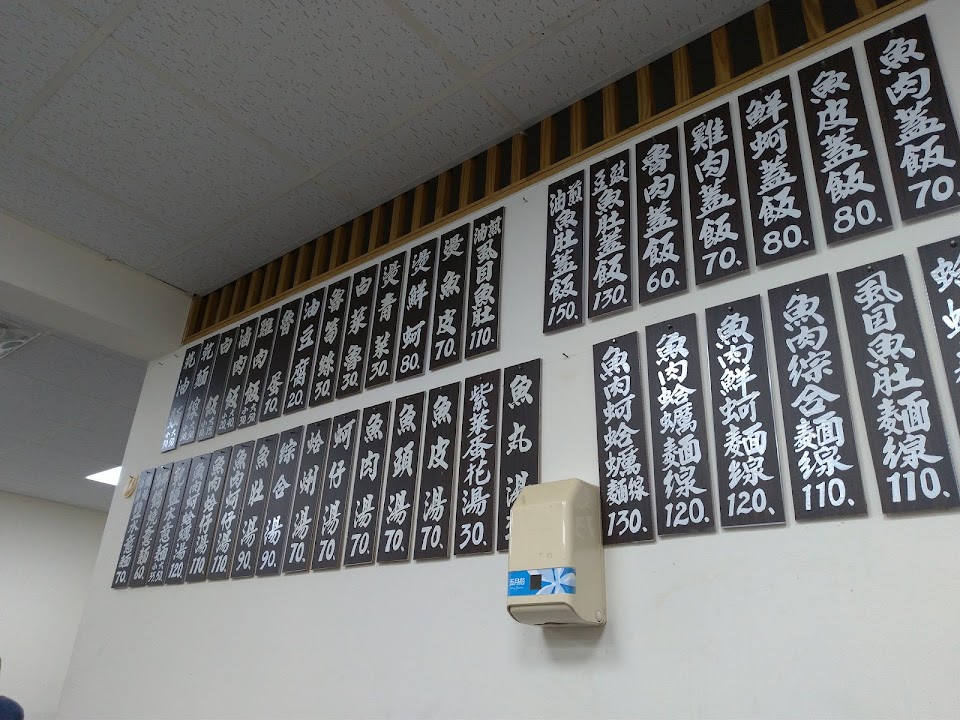 魚肉蓋飯 70、
魚皮蓋飯 80、
鮮蚵蓋飯 80、
雞肉蓋飯 70、
魯肉蓋飯 60、
豆豉魚肚蓋飯 130、
油煎魚肚蓋飯 150、
油煎虱目魚肚 110、
燙魚皮 70、
燙鮮蚵 80、
燙青菜 30、
白菜魯 30、
魯筍絲 30、
油豆腐 20、
魯蛋 10、
雞肉飯
滷肉飯
白飯
虱目魚肚麵線 110、
魚肉綜合麵線 110、
魚肉鮮蚵麵線 120、
魚肉蛤蠣麵線 120、
魚肉蚵蛤蠣麵線 130、
魚丸湯
紫菜蛋花湯 30、
魚皮湯 70、
魚頭湯 70、
魚肉湯 70、
蚵仔湯 70、
蛤蜊湯 70、
綜合湯 90、
魚肚湯 90、
魚肉蚵仔湯 110、
魚肉蛤仔湯 110、
五月花